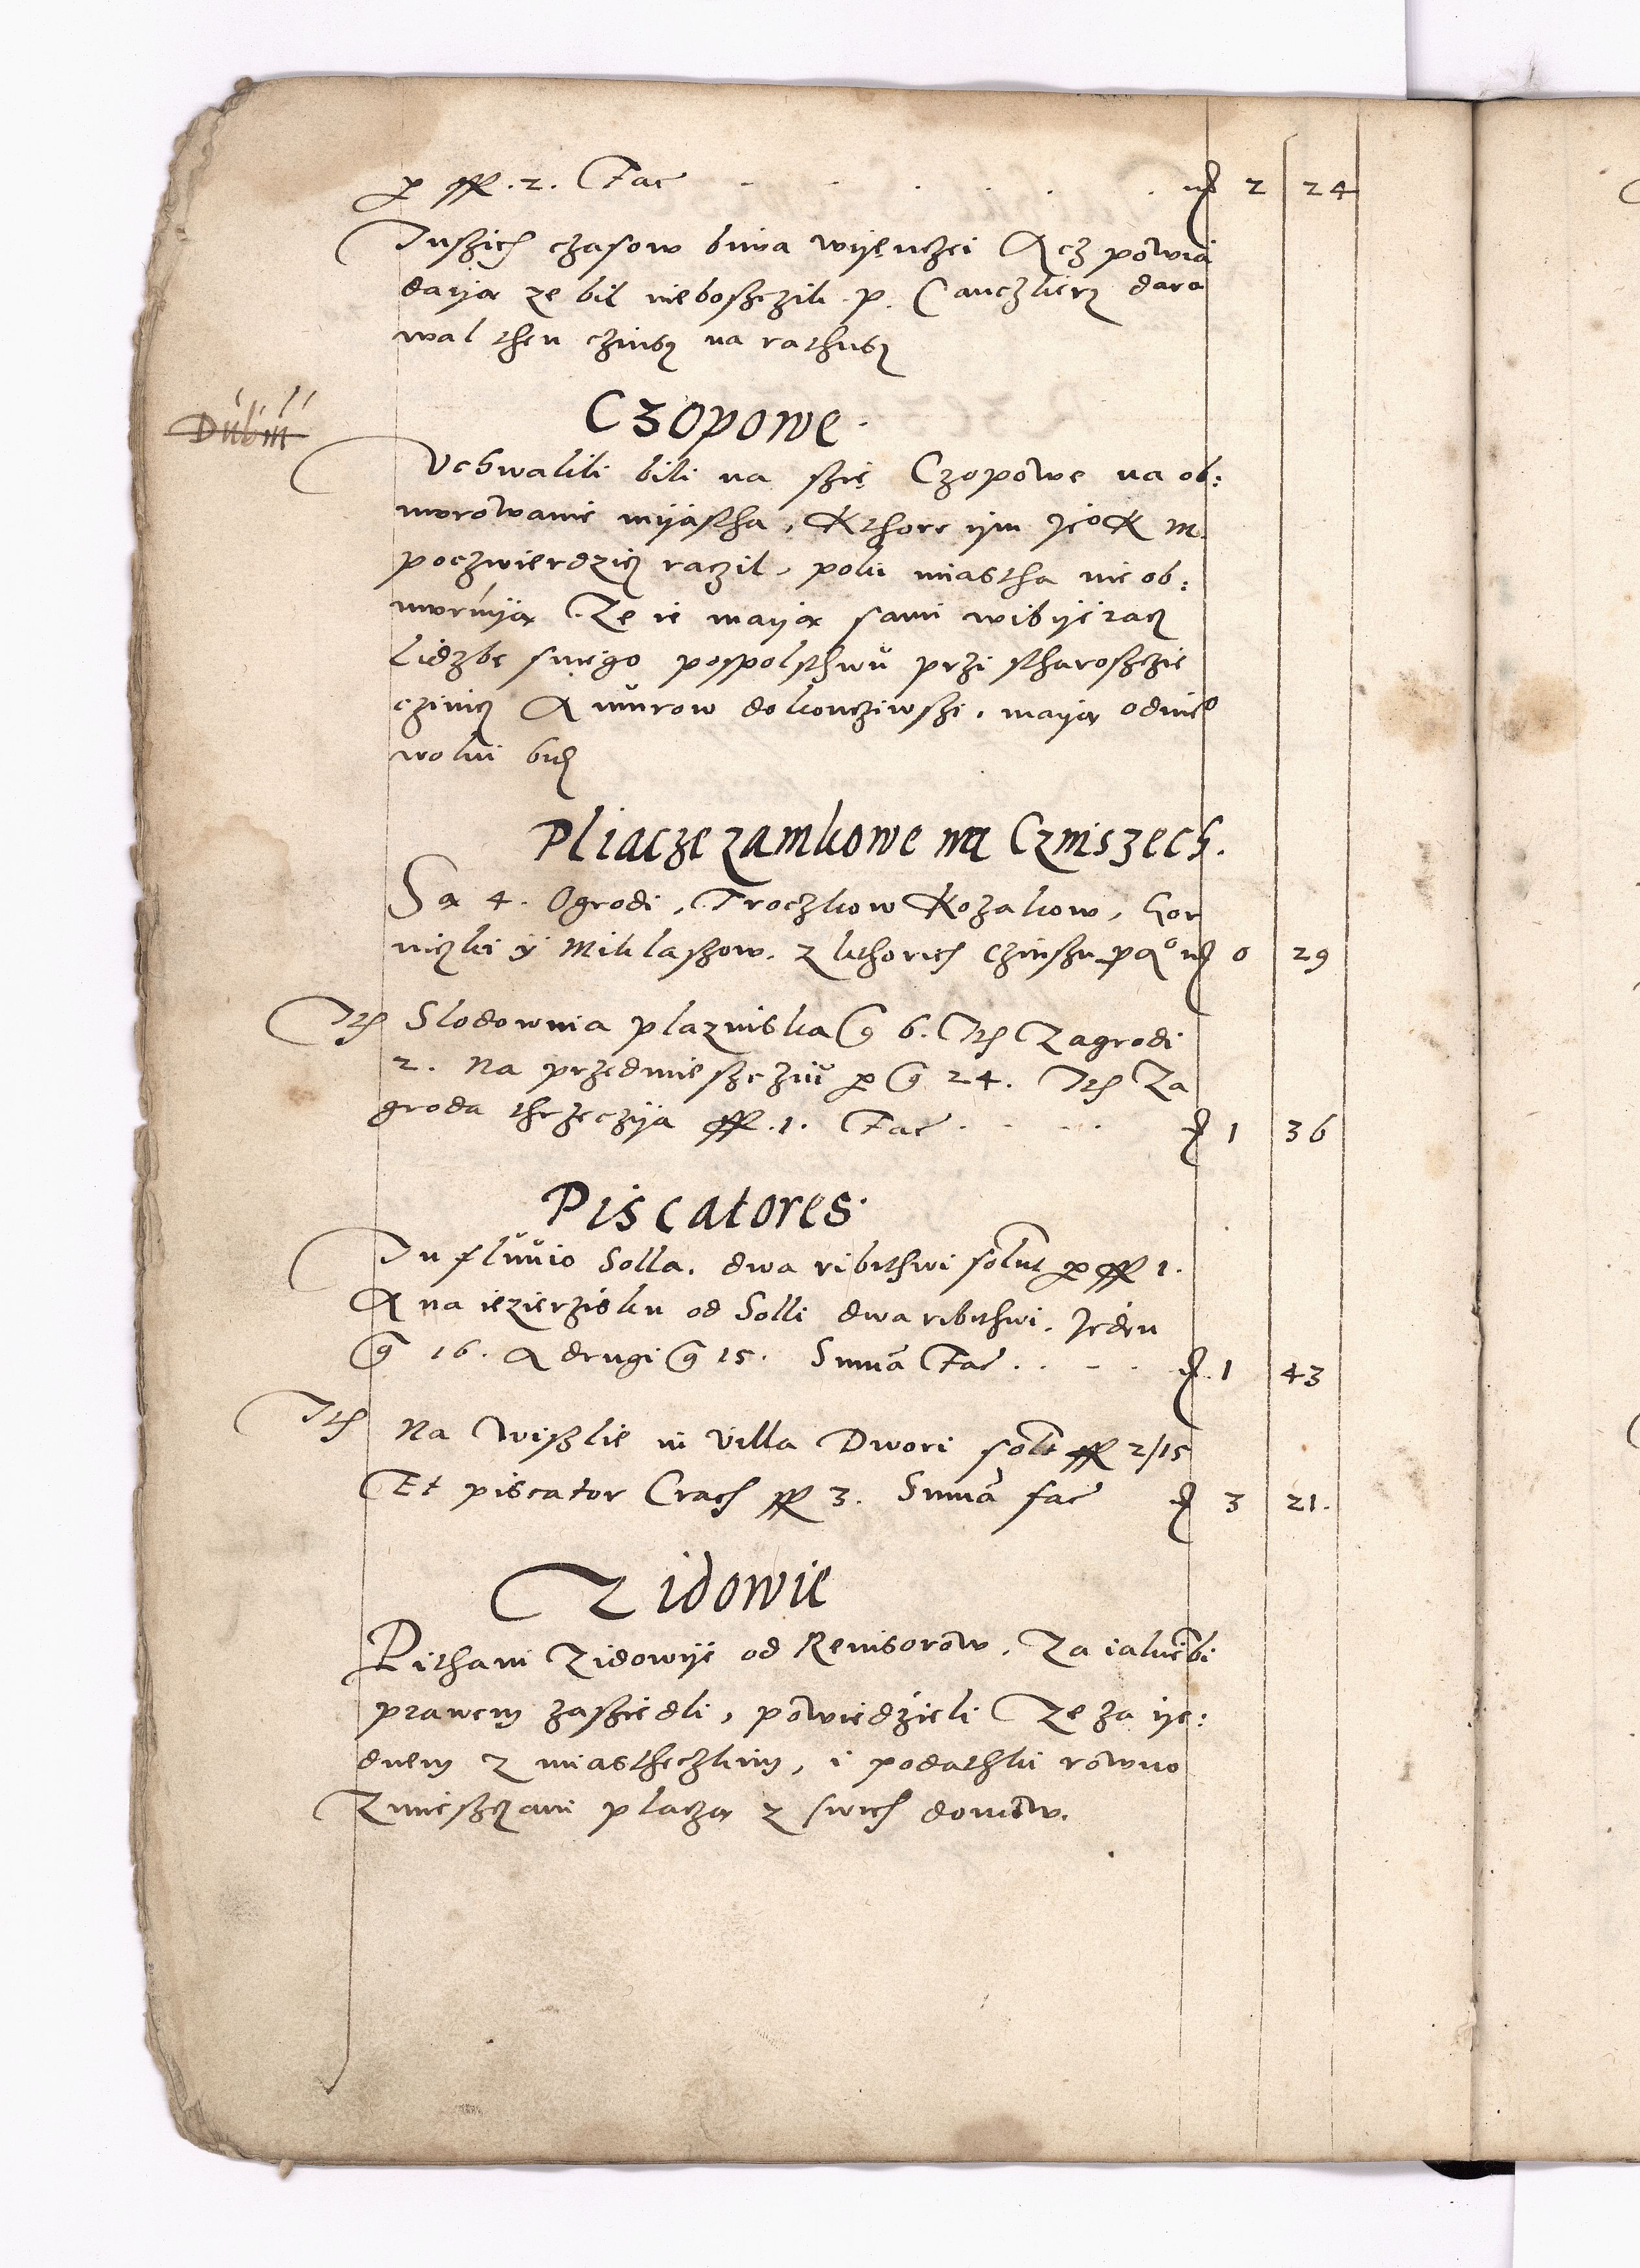 per ff. 2. Fac . . . . . . m 2 24
Inszich czasow biwa wyęnczei Acz powia
daya ze bil nieboszczik p. Canczlierz daro
wal then czinsz na rathusz
Czopowe.
Vchwalili bili na szię Czopowe na ob:
murowanie myastha, Kthore ym Je° K M.
poczwierdzicz raczil, poki miastha nie ob:
muruya Ze ie maya sami wibyeracz
Lidzbe swego pospolsthwu przi stharoszczie
czinicz A murow dokoncziwszi, maya od nie°
wolni bicz
Pliacze zamkowe na Czniszech.
Sa 4. Ogrodi, Troczkow Kozakow, Gor
niczki ÿ Miklaszow. z kthorich czinszu pa° m 0 29
Ite Slodownia plazniska g 6. Ite Zagrodi
2. Na przedmieszcziu per g 24. Ite Za
groda thrzeczya ff. 1. Fac . . . . 1 36
Piscatores.
In fluuio Solla. dwa ribithwi solut per ff 1.
A na iezierzisku od Solli dwa ribithwi. Jeden
g 16. A drugi g 15. Suma Fac . . . . 1 43
Ite Na Wiszlie in villa Dwori solut ff 2/15
Et piscator Crach ff 3. Suma fac 3 21.
Zidowie
Pithani Zidowye od Reuisorow. Za iakiebi
prawem zasziedli, powiedzieli Ze za ye:
dnem z miastheczkim, i podathki rowno
Zmieszczani placza z swich domow.